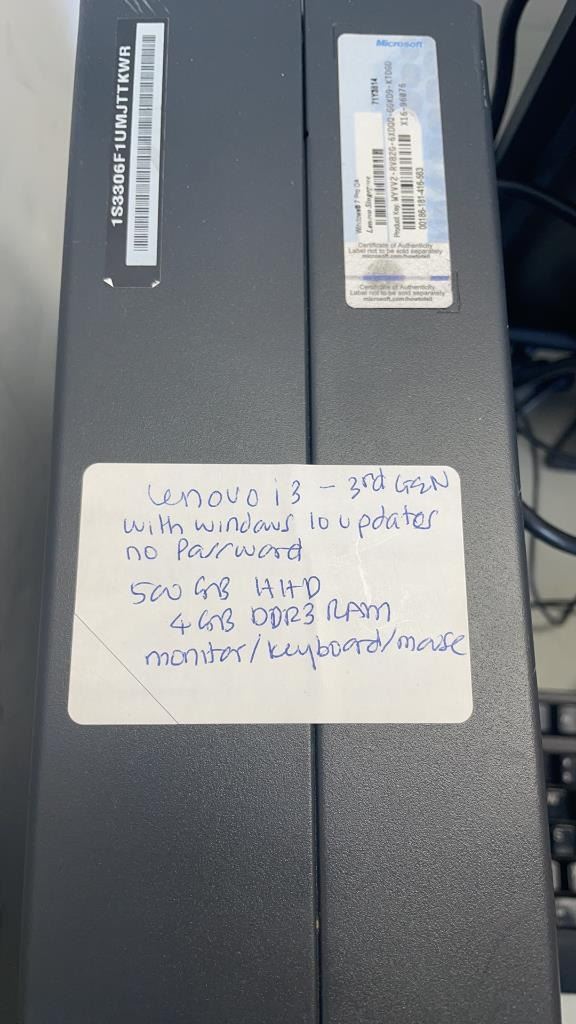 1S3306F1UMJTTKWR
Microsoft
Windows® 7 Pro OA
71Y3814
Lenovo Singapore
X16-96076
00186-181-416-563
Certificate of Authenticity
Label not to be sold separately
microsoft.com/howtotell
Certificate of Authenticity
Label not to be sold separately
microsoft.com/howtotell
Lenovo i3 - 3rd GEN
with windows 10 updates
no Password
500 GB HHD
4 GB DDR3 RAM
monitor/keyboard/mouse